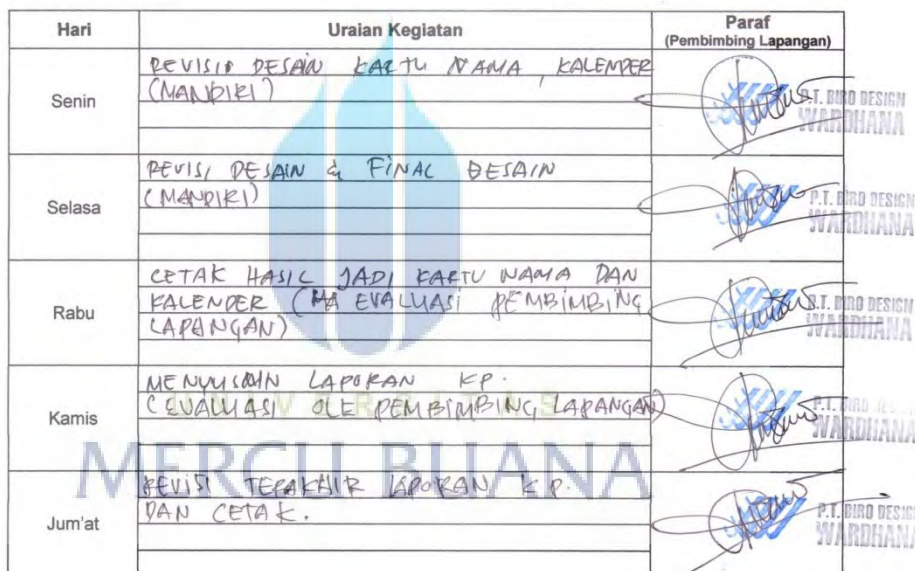 Hari Uraian Kegiatan Paraf
(Pembimbing Lapangan)
Senin
REVISI DESAIN KARTU NAMA, KALENDER
(MANDIRI)
P.T. BIRO DESIGN
WARDHANA
Selasa
REVISI DESAIN & FINAL DESAIN
(MANDIRI)
P.T. BIRO DESIGN
WARDHANA
Rabu
CETAK HASIL JADI KARTU NAMA DAN
KALENDER ( EVALUASI PEMBIMBING
LAPANGAN)
P.T. BIRO DESIGN
WARDHANA
Kamis
LAPORAN KP.
(EVALUASI OLE PEMBIMBING LAPANGAN)
P.T. BIRO DESIGN
WARDHANA
UNIVERSITAS
MERCU BUANA
Jum'at
REVISI LAPORAN K P.
DAN CETAK.
P.T. BIRO DESIGN
WARDHANA